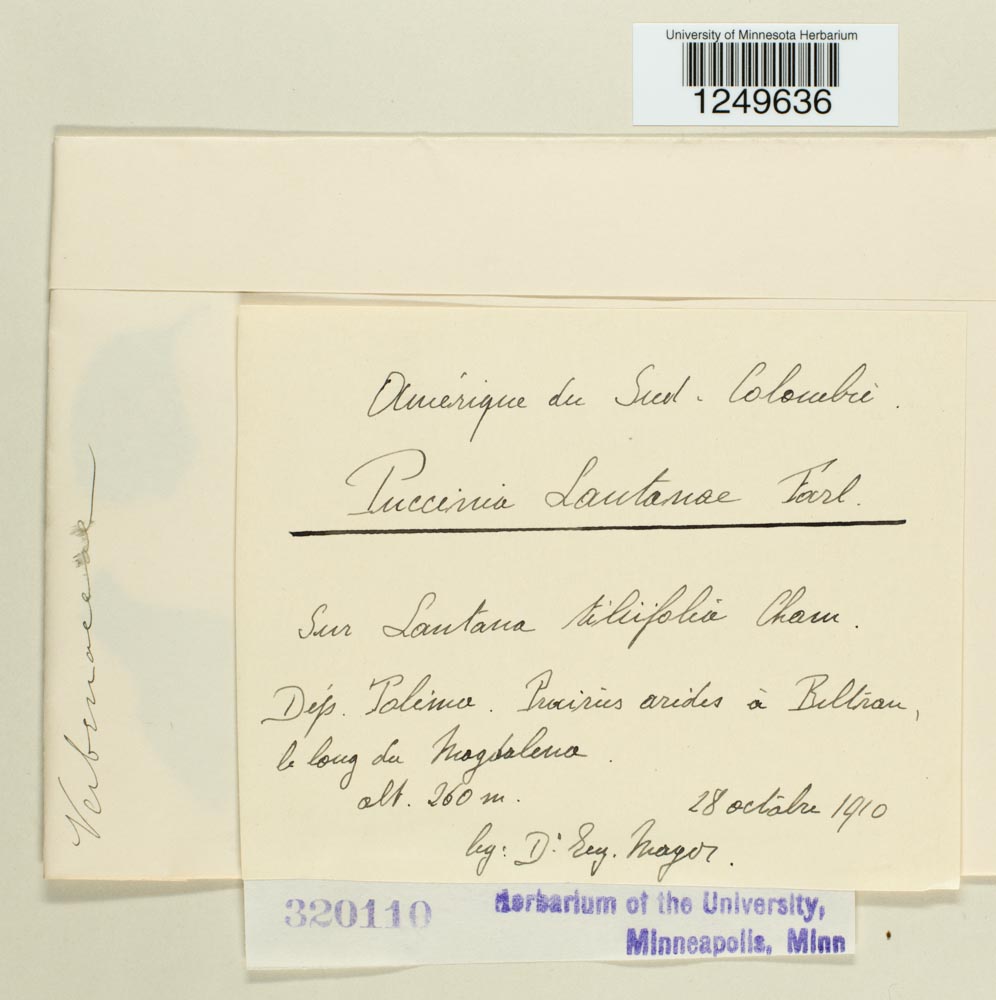 University of Minnesota Herbarium
1249636
Amérique du Sud - Colombie.
Puccinia Lantanae Farl.
Sur Lantana tiliifolia Cham.
Dép. Tolima. Prairies arides à Beltran,
le long du Magdalena.
alt. 260 m.
28 octobre 1910
leg: Dr Eug. Mayor.
Verbenaceae
320110
Herbarium of the University,
Minneapolis, Minn